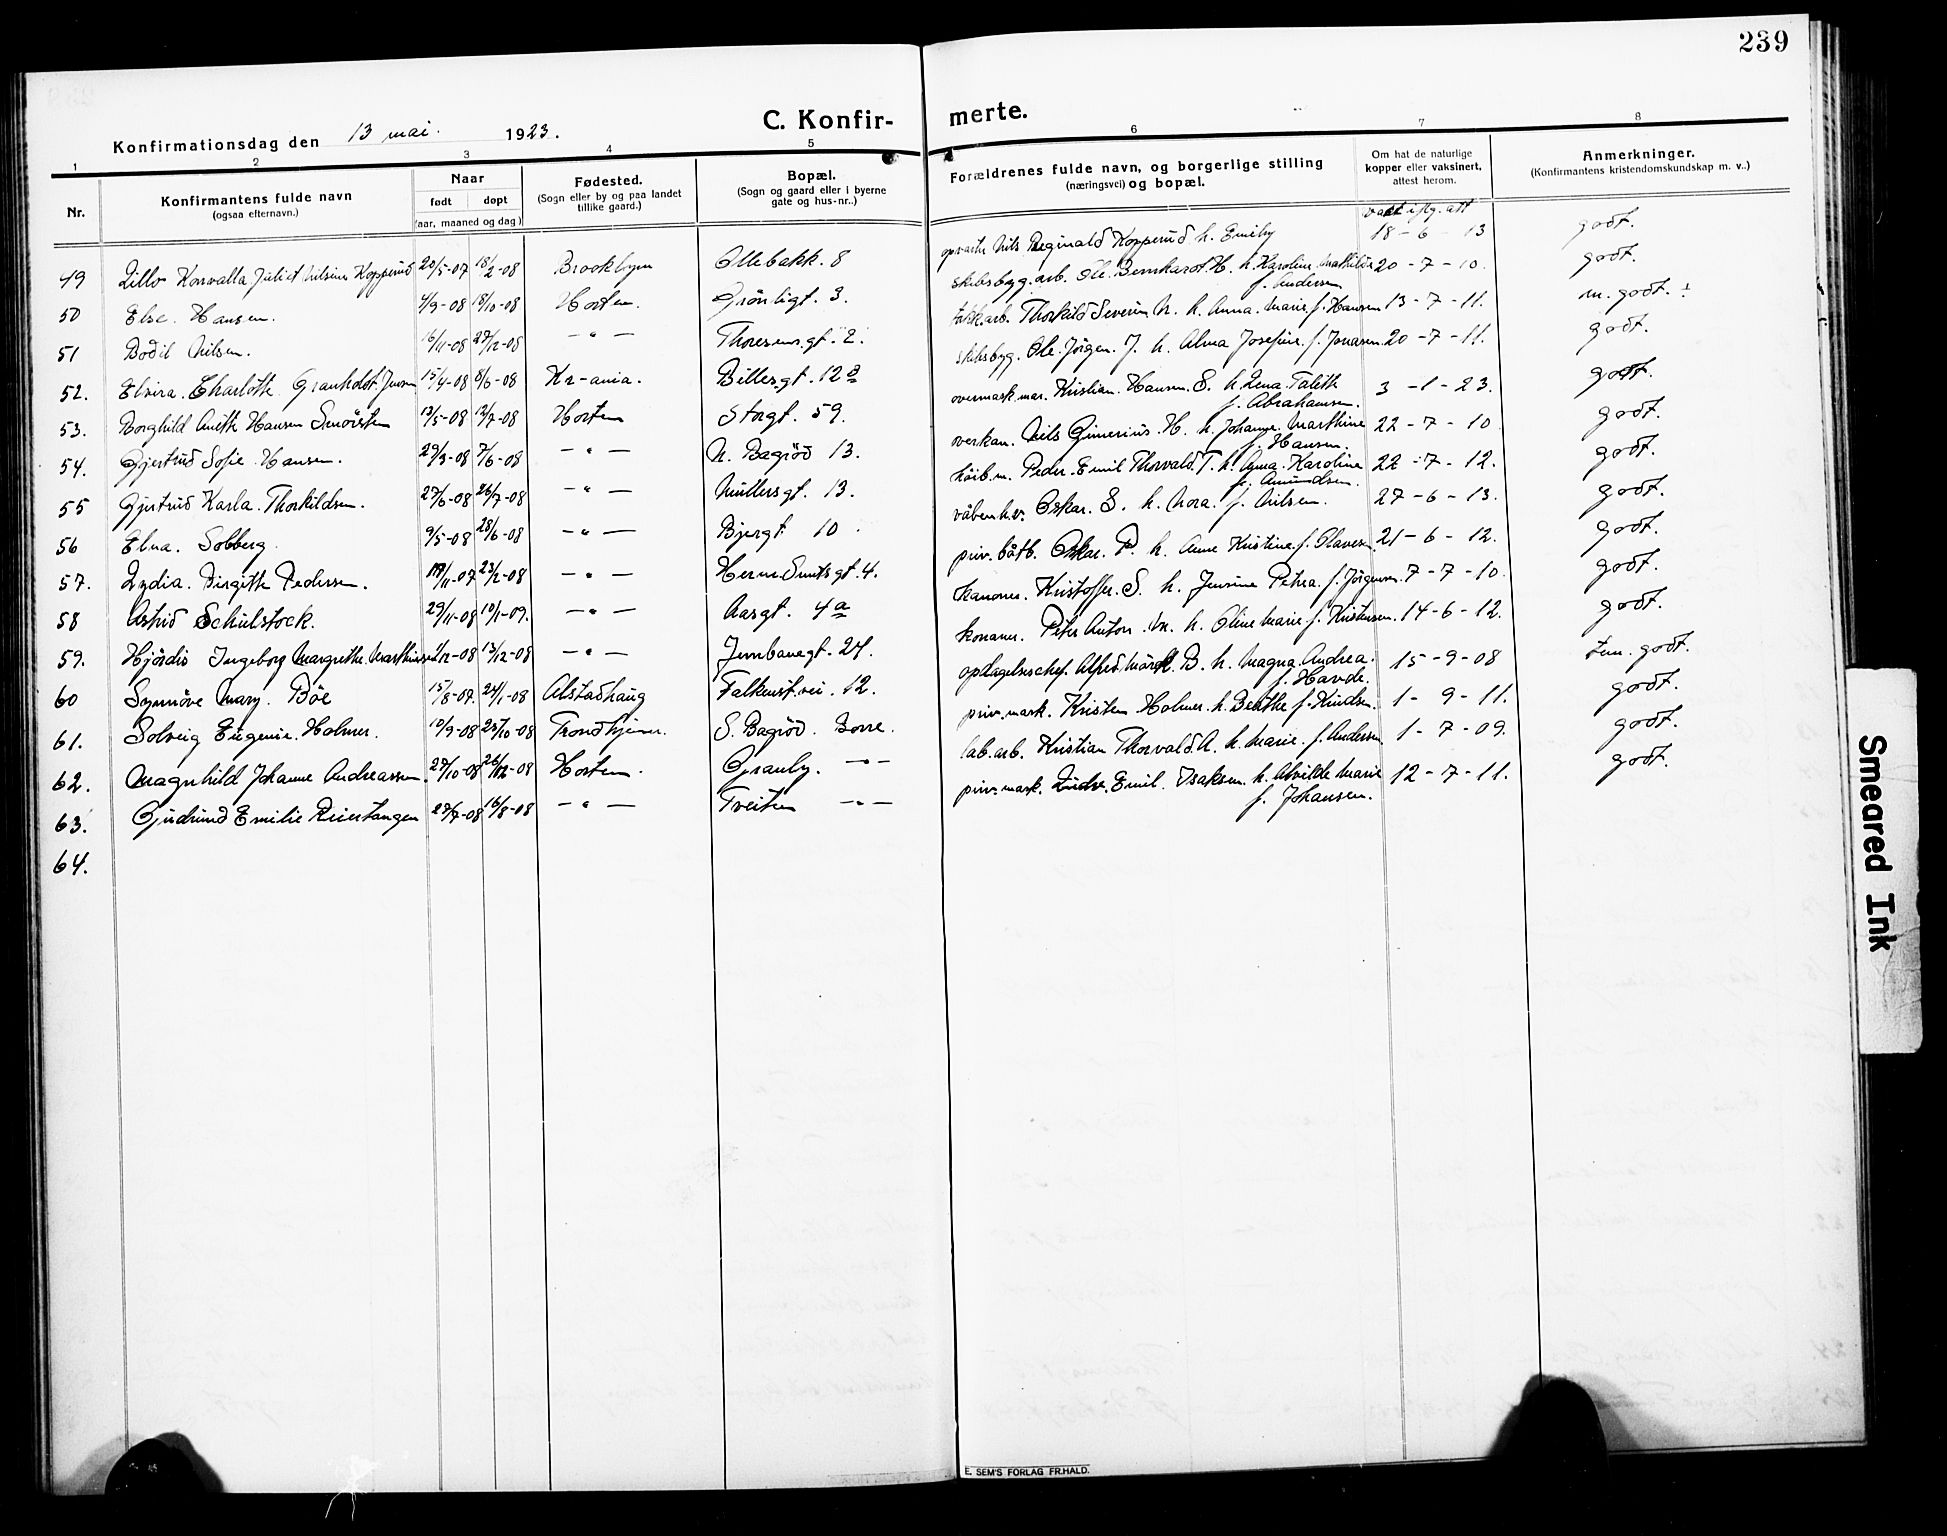 239
C. Konfir-
merte.
Konfirmationsdag den 13 mai. 1923.
1
2
3
4
5
6
7
8
Nr.
Konfirmantens fulde navn
(ogsaa efternavn.)
Naar
født
døpt
(aar, maaned og dag)
Fødested.
(Sogn eller by og paa landet
tillike gaard.)
Bopæl.
(Sogn og gaard eller i byerne
gate og hus-nr..)
Forældrenes fulde navn, og borgerlige stilling
(næringsvei) og bopæl.
Om hat de naturlige
kopper eller vaksinert,
attest herom.
Anmerkninger.
(Konfirmantens kristendomskundskap m. v..)
49 Juliet Nilsine Kopperud 20/5-07 18/2-08 Brooklyn Ollebakk. 8 Nils Reginald Kopperud h. Emily vact iflg. att 18-6-13 godt.
50 Else. Hansen. 4/9-08 18/10-08 Horten. Grönligt. 3. skibsbyg.arb. Ole. Bernhardt H. h. Karoline Mathilde f. Andersen 20-7-10. godt.
51 Bodil Nilsen. 16/11-08 27/12-08 - " - Thoresensgt. 2. Thorkild Severin N. h. Anna. Marie f. Hansen 13-7-11. m. godt. :
52. Elvira. Charlotte Jensen 15/4-08 8/6-08 Kr-ania. Billesgt. 12 a skibsbyg. Ole. Jörgen. J. h. Alma Josefine. f. Jonasen. 20-7-11. godt.
53. Borghild Anette Hansen 13/5-08 12/7-08 Horten Storgt. 59. overmask.mar. Kristian. Hansen. S. h. Lena. Talette f. Abrahamsen. 3-1-23. godt.
54. Gjertrud Sofie. Hansen. 29/3-08 7/6-08 - " - N. Bagröd 13. Nils Ginerius. H. h. Johanne. Marthine f. Hansen. 22-7-10 godt.
55 Gjertrud Karla. Thorkildsen. 27/6-08 26/7-08 - " - Müllersgt. 13. Peder. Emil Thorvald. T. h. Anna. Karoline f. Amundsen. 22-7-12. godt.
56 Elna. Solberg. 9/5-08 28/6-08 - " - Bjergt 10 Oskar. S. h. Nora. f. Nilsen. 27-6-13. godt.
57. Lydia. Birgitte Pedersen. 17/11-07 23/2-08 - " - Herm. Smitsgt. 4. priv. båtb. Oskar. P. h. Anne Kristine. f. Olavesen 21-6-12. godt.
58 Astrid Schülstock. 29/11-08 10/1-09. - " - Aasgt. 4 a kanoner. Kristoffer. S. h. Jensine Petra. f. Jörgensen. 7-7-10. godt.
59. Hjördis Ingeborg Margrethe. Marthinsen 1/12-08 13/12-08 - " - Jernbanegt. 24. Peter Anton. M. h. Oline Marie f. Kristensen. 14-6-12. godt.
60 Synnöve Mary. Böe 15/8-07. 24/1-08 Alstadhaug Falkenst.vei. 12. oplagelseschef. Alfred Mörck. B. h. Magna. Andrea. f. Havde. 15-9-08 tem. godt.
61. Solveig Eugenie. Holmer. 10/9-08 25/10-08 Trondhjem. S. Bagröd. Borre. priv.mask. Kristen. Holmer. h. Berthe f. Knudsen. 1-9-11. godt.
62. Magnhild Johanne Andreassen. 27/10-08 26/12-08 Horten. Granly. - " - lab.arb. Kristian Thorvald. A. h. Marie. f. Andersen. 1-7-09. godt.
63. Gudrund Emilie Reiertangen 27/7-08 16/8-08 - " - Tveiten - " - priv.mask. Emil. Isaksen. h. Alvilde Marie f. Johansen. 12-7-11. godt.
64.
E. SEM'S FORLAG FR.HALD.
Smeared Ink